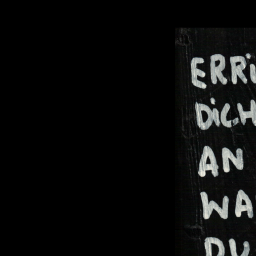 ERRi
DiCH
AN
WA
DU